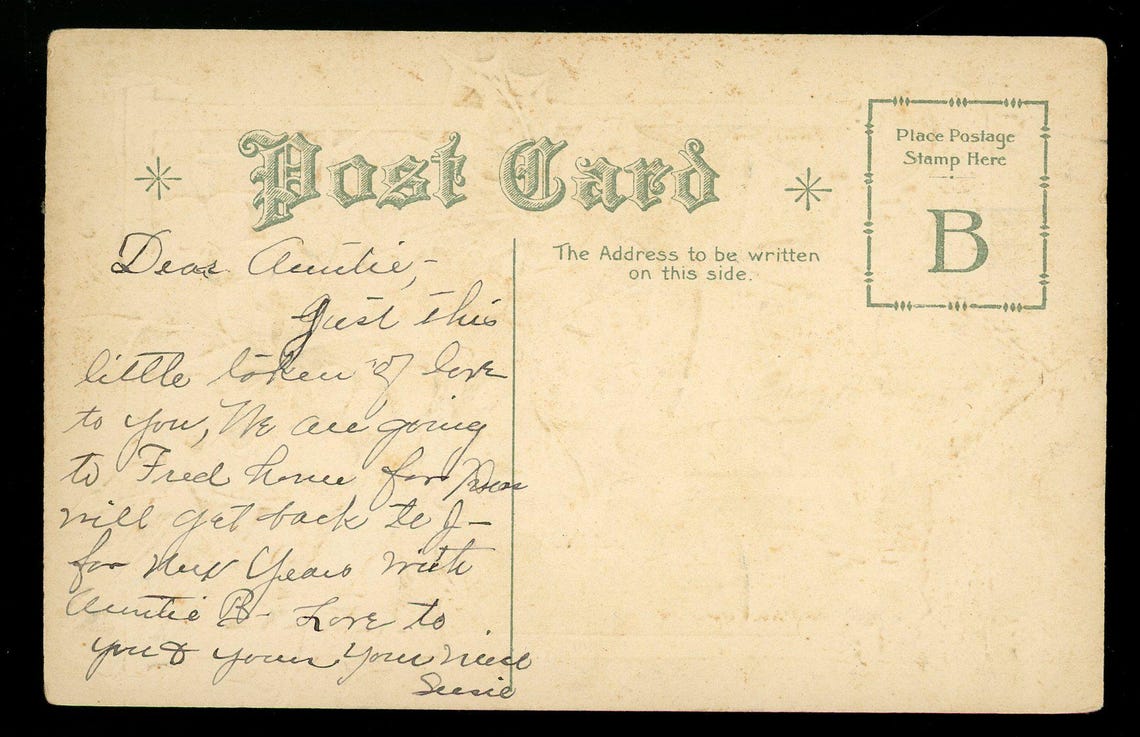 Post Card
Place Postage
Stamp Here
B
The Address to be written
on this side.
Dear Auntie,-
Just this
little token of love
to you, We are going
to Fred home for
will get back to J-
for New Years with
Auntie B- Love to
you & yours Your niece
Susie